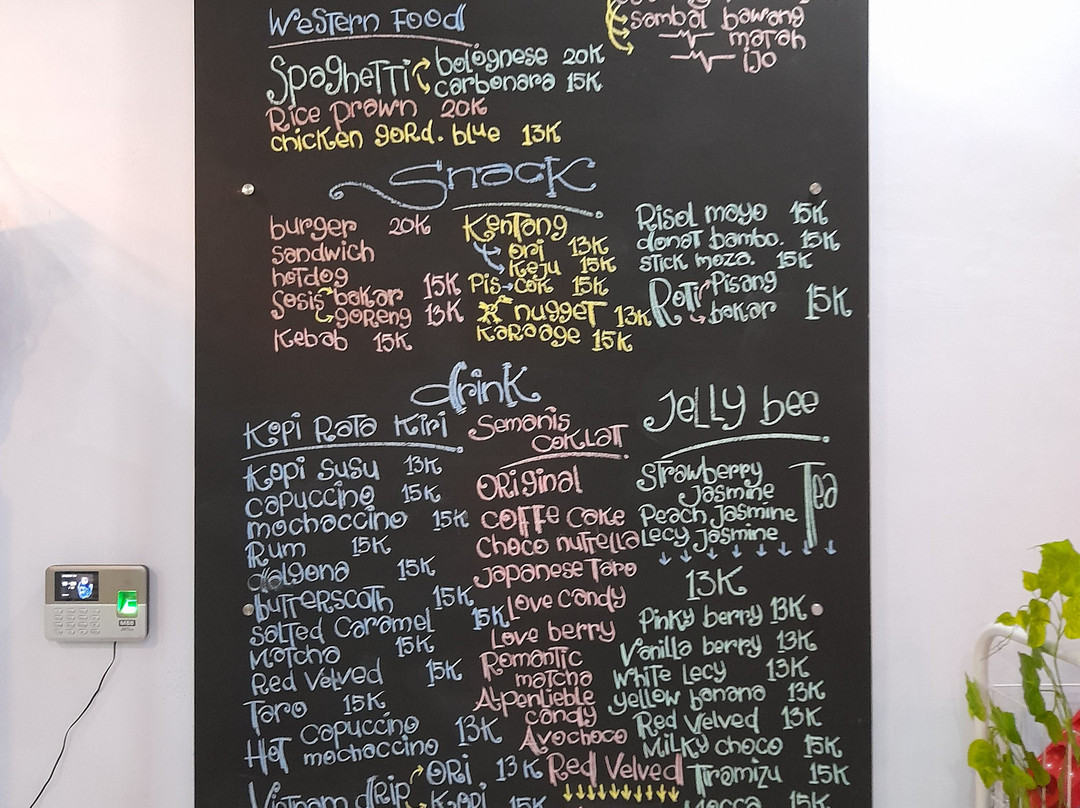 Western Food
Spaghetti bolognese 20K
carbonara 15K
Rice prawn 20K
chicken gord. blue 13K
sambal bawang
matah
ijo
Snack
burger 20K
sandwich
hotdog 15K
Sosis bakar
goreng 13K
Kebab 15K
Kentang
ori 13K
Keju 15K
Pis-cok 15K
nugget 13K
Karaage 15K
Risol mayo 15K
donat bambo. 15K
stick moza. 15K
Roti Pisang
bakar 15K
drink
Kopi Rata Kiri
Kopi susu 13K
capuccino 15K
mochaccino 15K
Rum 15K
dalgona 15K
butterscoth 15K
salted caramel 15K
Matcha 15K
Red Velved 15K
Taro 15K
Hot capuccino
mochaccino 13K
Vietnam drip ORi 13K
Kopi 15K
Semanis
coklat
ORiginal
coffe cake
choco nuttella
Japanese Taro
Love candy
Love berry
Romantic
matcha
Alpenlieble
candy
Avochoco
Red Velved
Jelly bee
Strawberry
Jasmine
Peach Jasmine
Lecy Jasmine
Tea
13K
Pinky berry 13K
Vanilla berry 13K
White Lecy 13K
yellow banana 13K
Red Velved 13K
Milky choco 15K
Tiramizu 15K
Mocca 15K